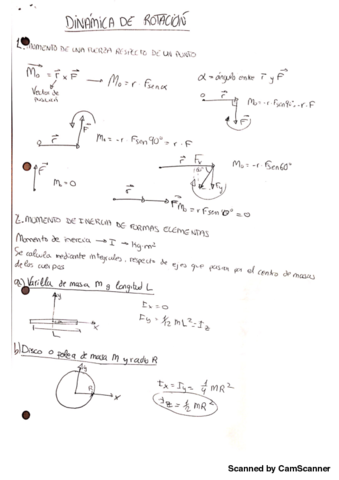 DINÁMICA DE ROTACIÓN
1. MOMENTO DE UNA FUERZA RESPECTO DE UN PUNTO
M₀ = r × F → M₀ = r · F senα   α = ángulo entre r y F
Vector de
r   F   M₀ = -r · F sen90° = -r · F
r   F   M₀ = -r · F sen90° = r · F
r   Fx   Fy   F   M₀ = -r · F sen60°
F   M₀ = 0
r   F   M₀ = r F sen 0° = 0
2. MOMENTO DE INERCIA DE FORMAS ELEMENTALES
Momento de inercia → I → kg·m²
Se calcula mediante integrales, respecto de ejes que pasan por el centro de masas
de los cuerpos
a) Varilla de masa M y longitud L
y   x   L
Ix = 0
Iy = 1/12 ML² = Iz
b) Disco o polea de masa M y radio R
y   R   x
Ix = Iy = 1/4 MR²
Iz = 1/2 MR²
Scanned by CamScanner